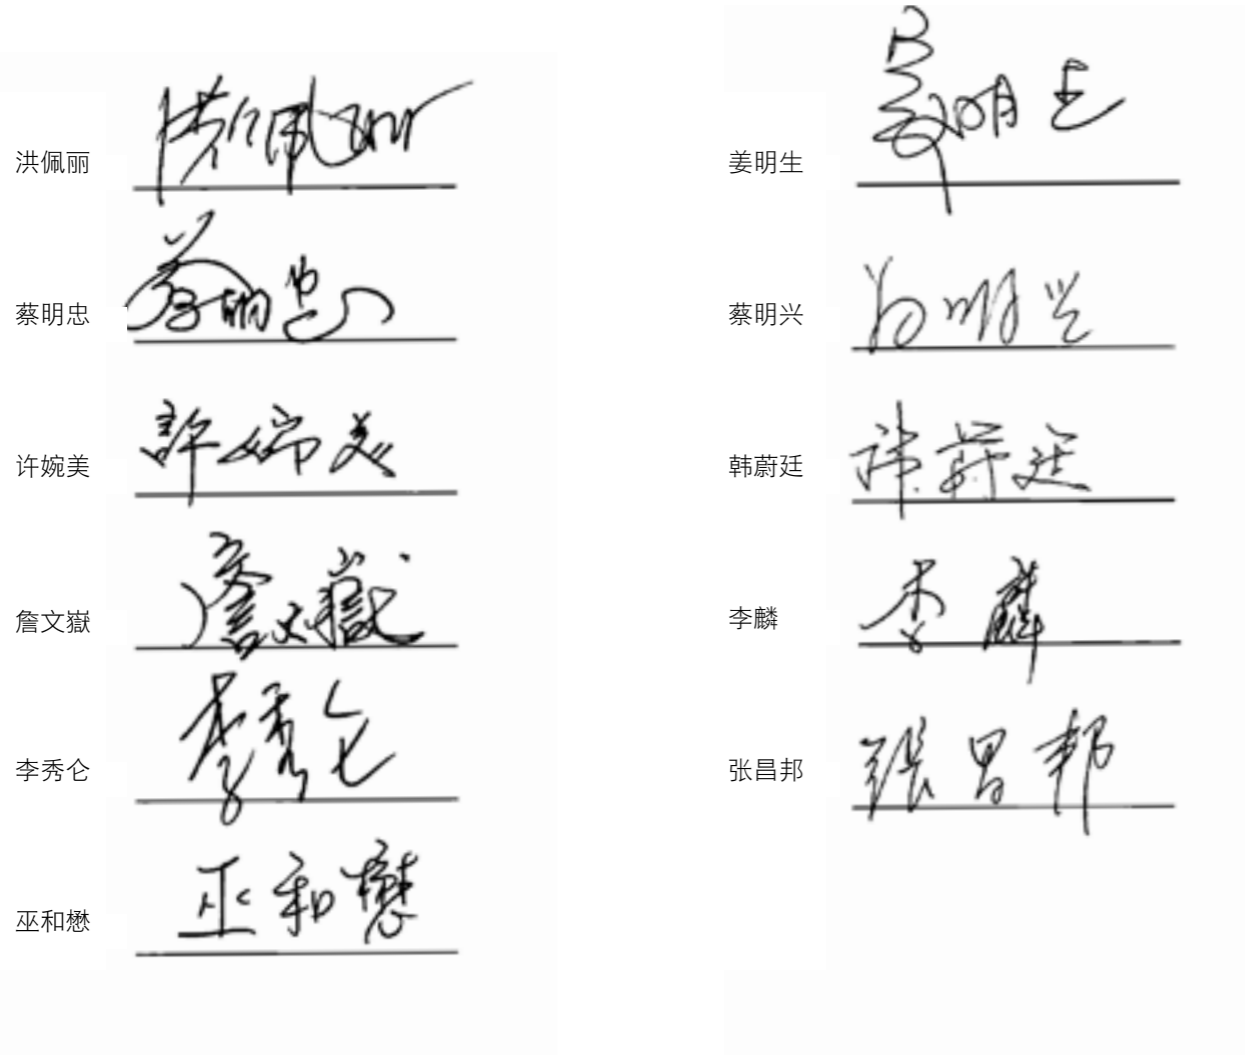 洪佩丽 洪佩丽
蔡明忠 蔡明忠
许婉美 許美
詹文嶽 詹文嶽
李秀仑 李秀仑
巫和懋 巫和懋
姜明生 姜明生
蔡明兴 蔡明兴
韩蔚廷 韩蔚廷
李麟 李麟
张昌邦 張昌邦